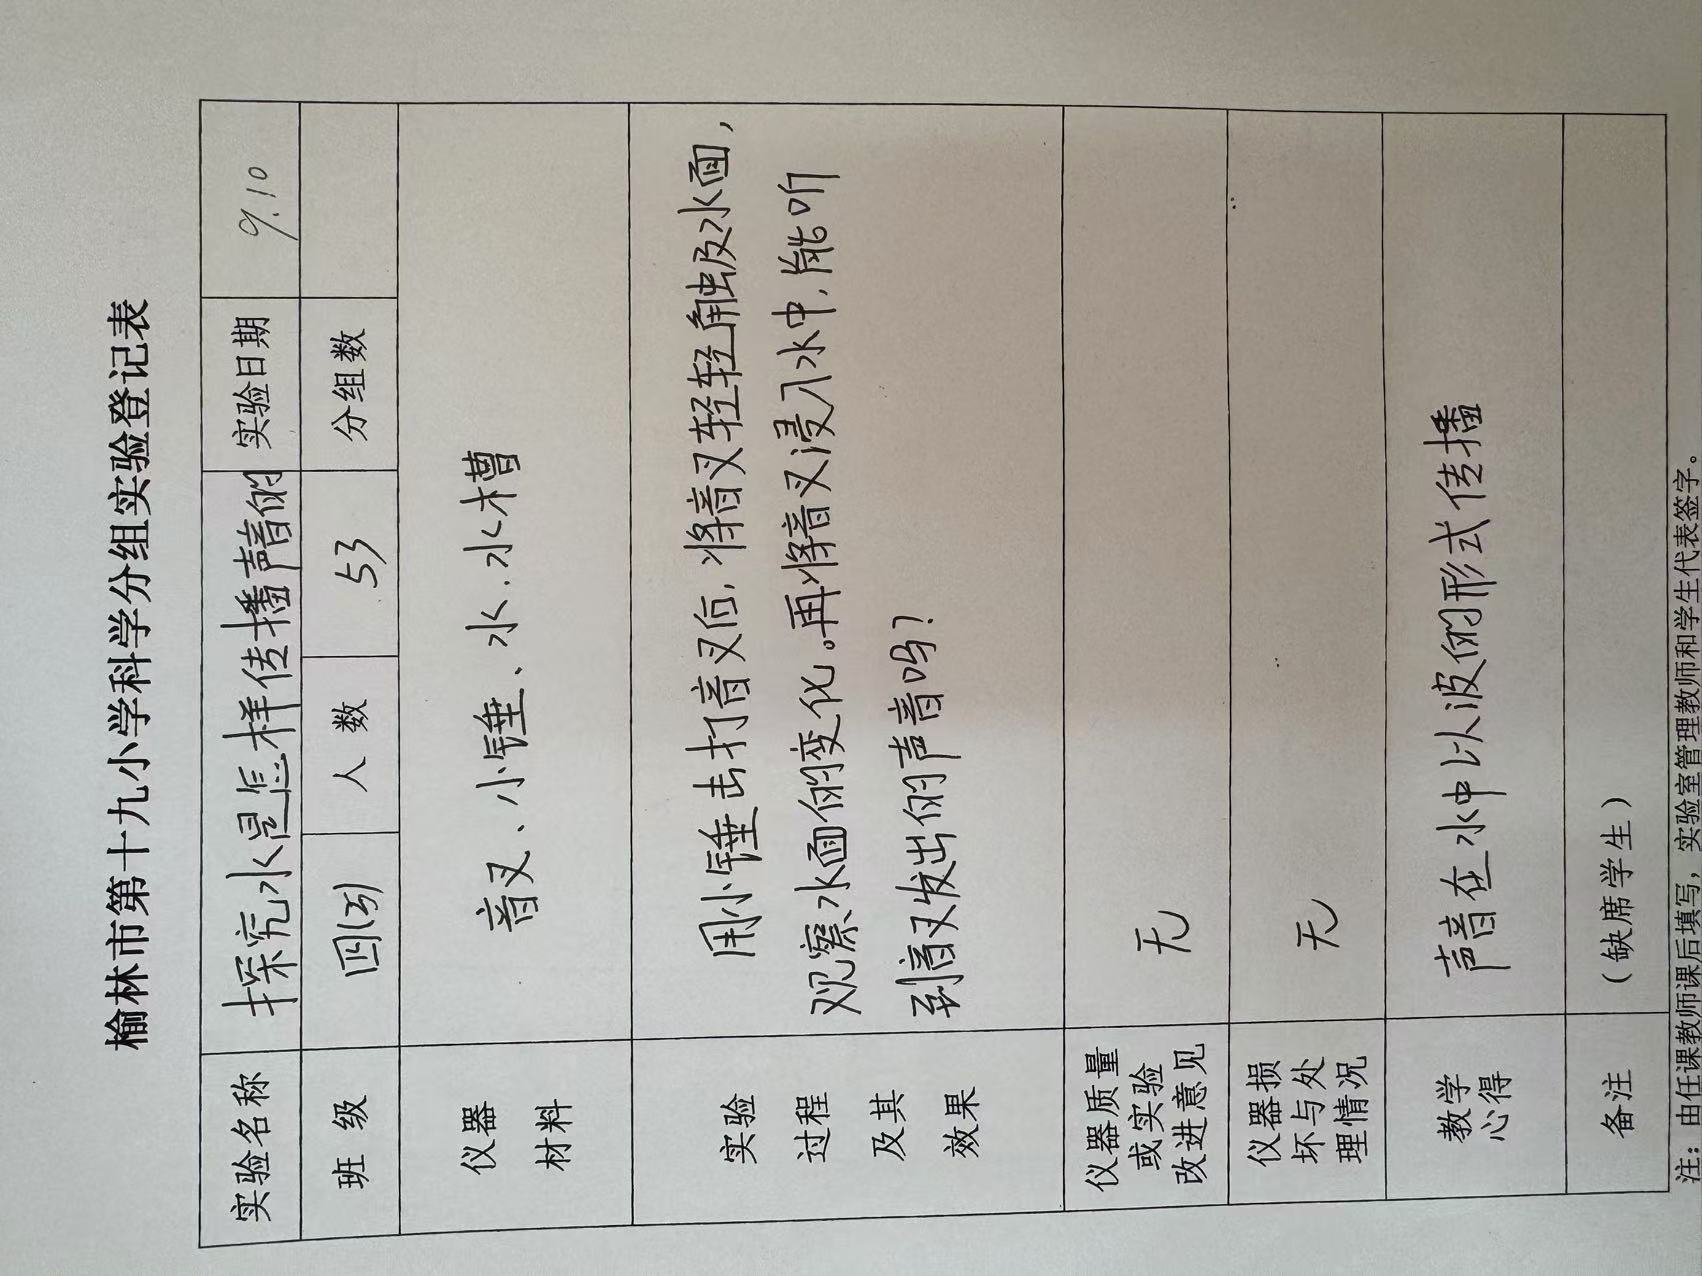 榆林市第十九小学科学分组实验登记表
实验名称 探究水是怎样传播声音的 实验日期 9.10
班 级 四(3) 人 数 53 分组数
仪器
材料
音叉、小锤、水、水槽
实验
过程
及其
效果
用小锤击打音叉后,将音叉轻轻触及水面,
观察水面的变化。再将音叉浸入水中,能听
到音叉发出的声音吗?
仪器质量
或实验
改进意见
无
仪器损
坏与处
理情况
无
教学
心得
声音在水中以波的形式传播
备注 (缺席学生)
注:由任课教师课后填写,实验室管理教师和学生代表签字。